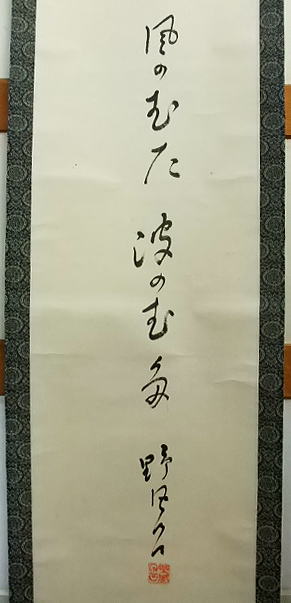 風のむた 波のむ多 野風呂